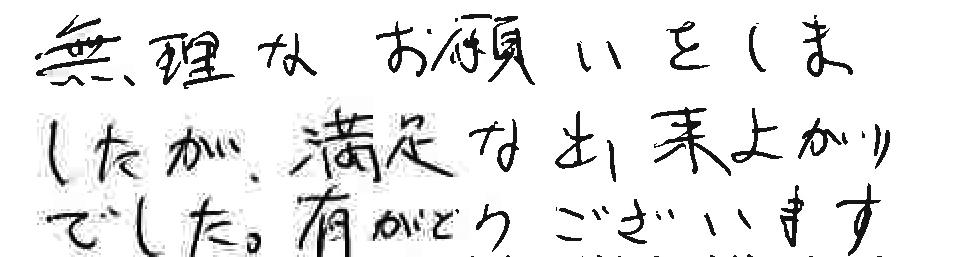 無理なお願いをしま
したが、満足な出来よがり
でした。有がとうございます